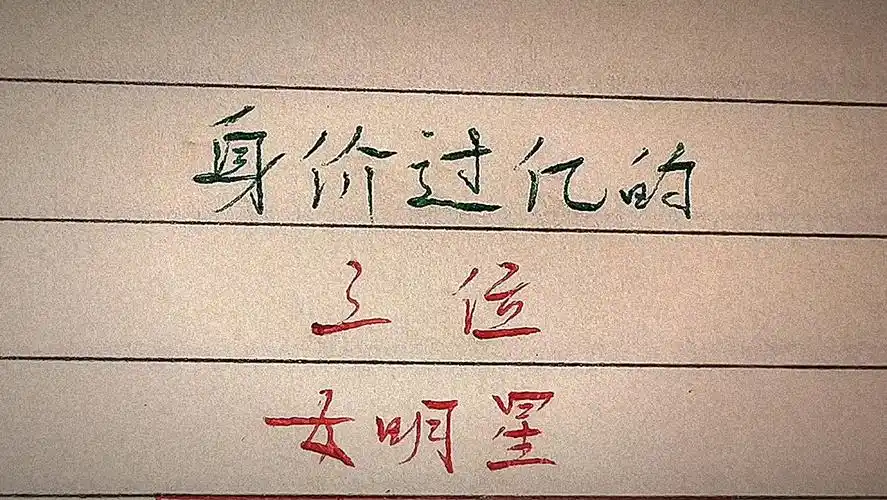 身价过亿的
三位
女明星